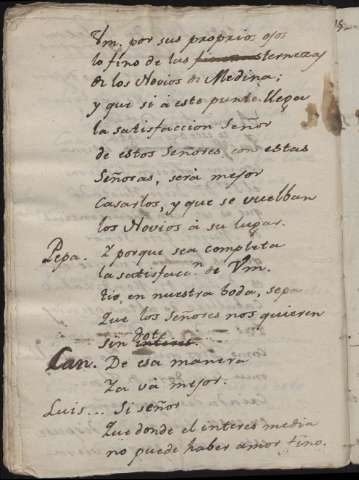 Vm. por sus proprios ojos
lo fino de las ternezas
de los Novios de Medina;
y que si à este punto llega
la satisfaccion Señor
de estos Señores con estas
Señoras, será mejor
Casarlos, y que se vuelban
los Novios à su lugar.
Pepa. Y porque sea completa
la satisfacn. de Vm.
tio, en nuestra boda, sepa
Que los Señores nos quieren
sin dote interes.
Can. De esa manera
Ya và mejor.
Luis... Si señor
Que donde el interes media
no puede haber amor fino.